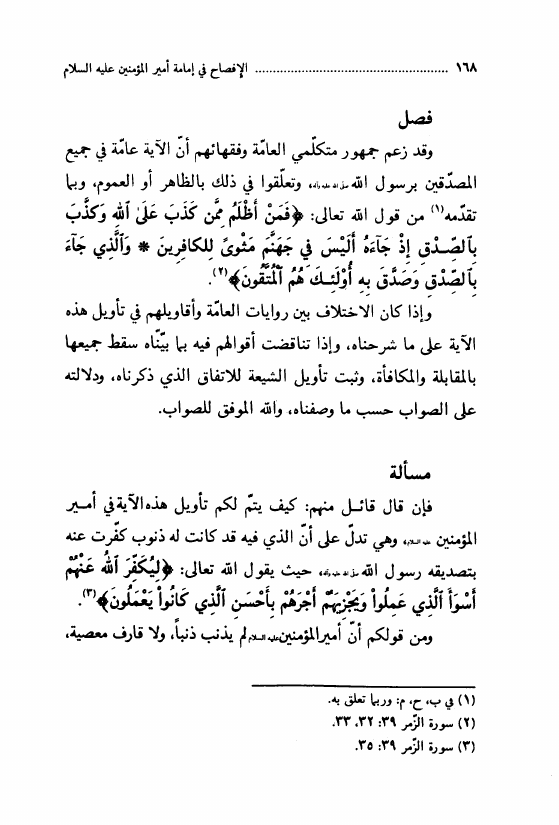 ١٦٨ ........................................................ الإفصاح في إمامة أمير المؤمنين عليه السلام
فصل
وقد زعم جمهور متكلّمي العامّة وفقهائهم أنّ الآية عامّة في جميع
المصدّقين برسول الله صلى الله عليه وآله، وتعلّقوا في ذلك بالظاهر أو العموم، وبما
تقدّمه(١) من قول الله تعالى: ﴿فَمَنْ أَظْلَمُ مِمَّن كَذَبَ عَلَىٰ ٱللهِ وَكَذَّبَ
بِٱلصِّدْقِ إِذْ جَآءَهُ أَلَيْسَ فِي جَهَنَّمَ مَثْوىً لِلكَافِرِينَ * وَٱلَّذِي جَآءَ
بِٱلصِّدْقِ وَصَدَّقَ بِهِ أُوْلَئِكَ هُمُ ٱلْمُتَّقُونَ﴾(٢).
وإذا كان الاختلاف بين روايات العامّة وأقاويلهم في تأويل هذه
الآية على ما شرحناه، وإذا تناقضت أقوالهم فيه بما بيّنّاه سقط جميعها
بالمقابلة والمكافأة، وثبت تأويل الشيعة للاتفاق الذي ذكرناه، ودلالته
على الصواب حسب ما وصفناه، والله الموفق للصواب.
مسألة
فإن قال قائل منهم: كيف يتمّ لكم تأويل هذه الآية في أمير
المؤمنين عليه السلام، وهي تدلّ على أنّ الذي فيه قد كانت له ذنوب كفّرت عنه
بتصديقه رسول الله صلى الله عليه وآله، حيث يقول الله تعالى: ﴿لِيُكَفِّرَ ٱللهُ عَنْهُمْ
أَسْوَأَ ٱلَّذِي عَمِلُواْ وَيَجْزِيَهُمْ أَجْرَهُمْ بِأَحْسَنِ ٱلَّذِي كَانُواْ يَعْمَلُونَ﴾(٣).
ومن قولكم أنّ أمير المؤمنين عليه السلام لم يذنب ذنباً، ولا قارف معصية،
(١) في ب، ح، م: وربما تعلق به.
(٢) سورة الزّمر ٣٩: ٣٢، ٣٣.
(٣) سورة الزّمر ٣٩: ٣٥.